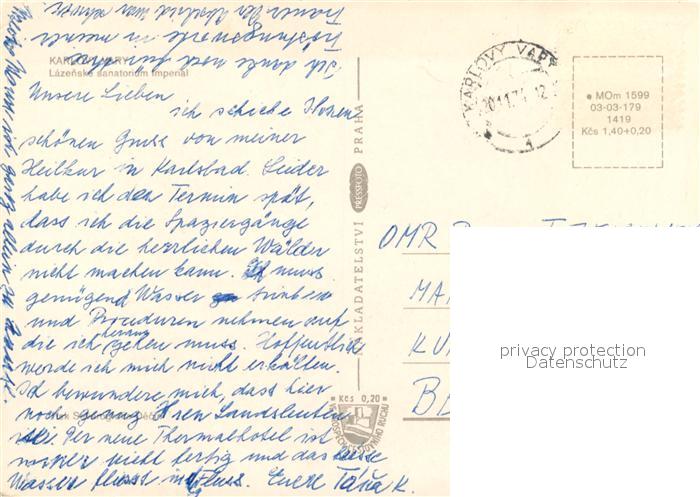 KARLOVY VARY
Lázeňské sanatorium Imperial
Unsere Lieben
ich schicke Ihnen
schönen Gruss von meiner
Heilkur in Karlsbad. Leider
habe ich den Termin spät,
dass ich die Spaziergänge
durch die herrlichen Wälder
nicht machen kann. Ich muss
genügend Wasser trinken
und Proceduren nehmen auf
die ich gehen muss. Hoffentlich
werde ich mich nicht erkälten.
Ich bewundere mich, dass hier
noch genug Ihren Landsleuten
Der neue Thermalhotel ist
nicht fertig und das heisse
Wasser fliesst in Fluss. Euere Táňa K.
Ich danke noch für Ihre
in meiner
Trauer der
NAKLADATELSTVÍ PRESSFOTO PRAHA
Kčs 0,20
KARLOVY VARY
1
MOm 1599
03-03-179
1419
Kčs 1,40+0,20
OMR
MA
KU
BE
privacy protection
Datenschutz